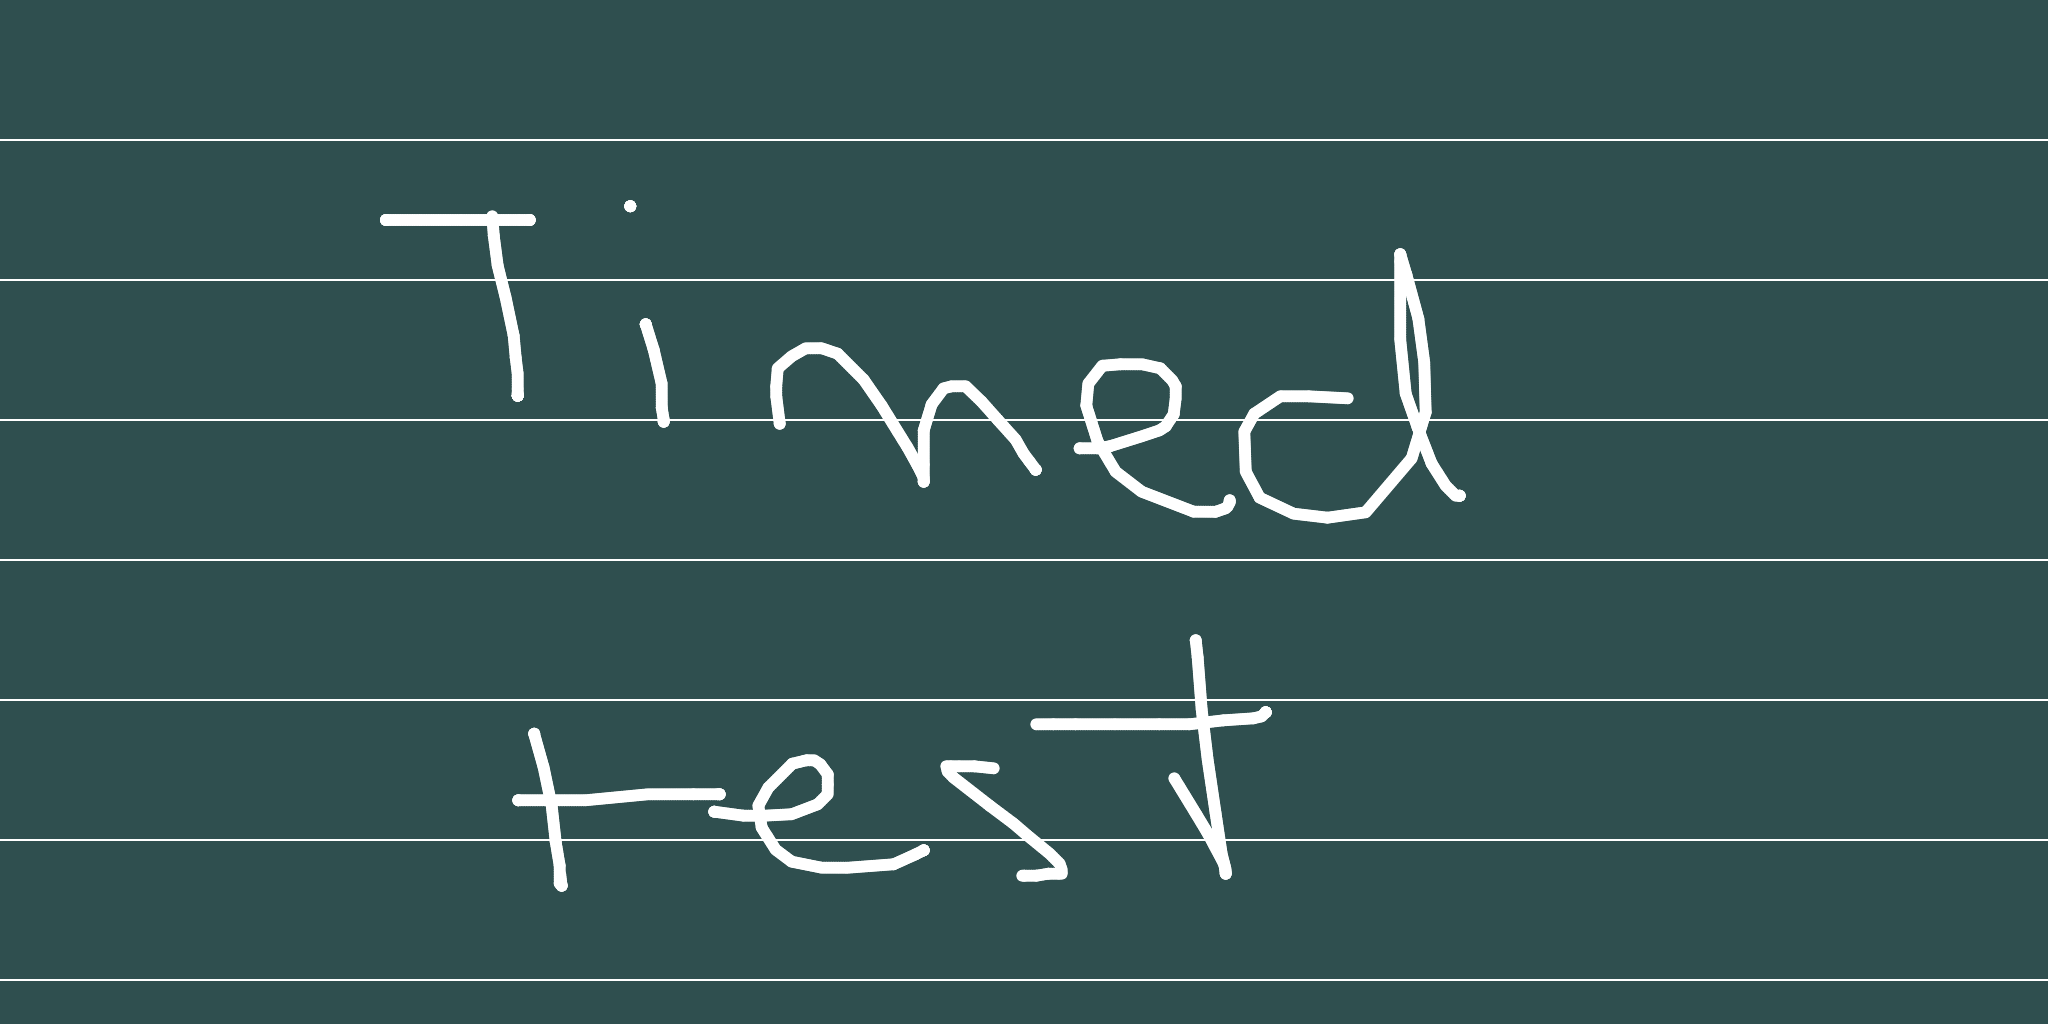 Timed
test